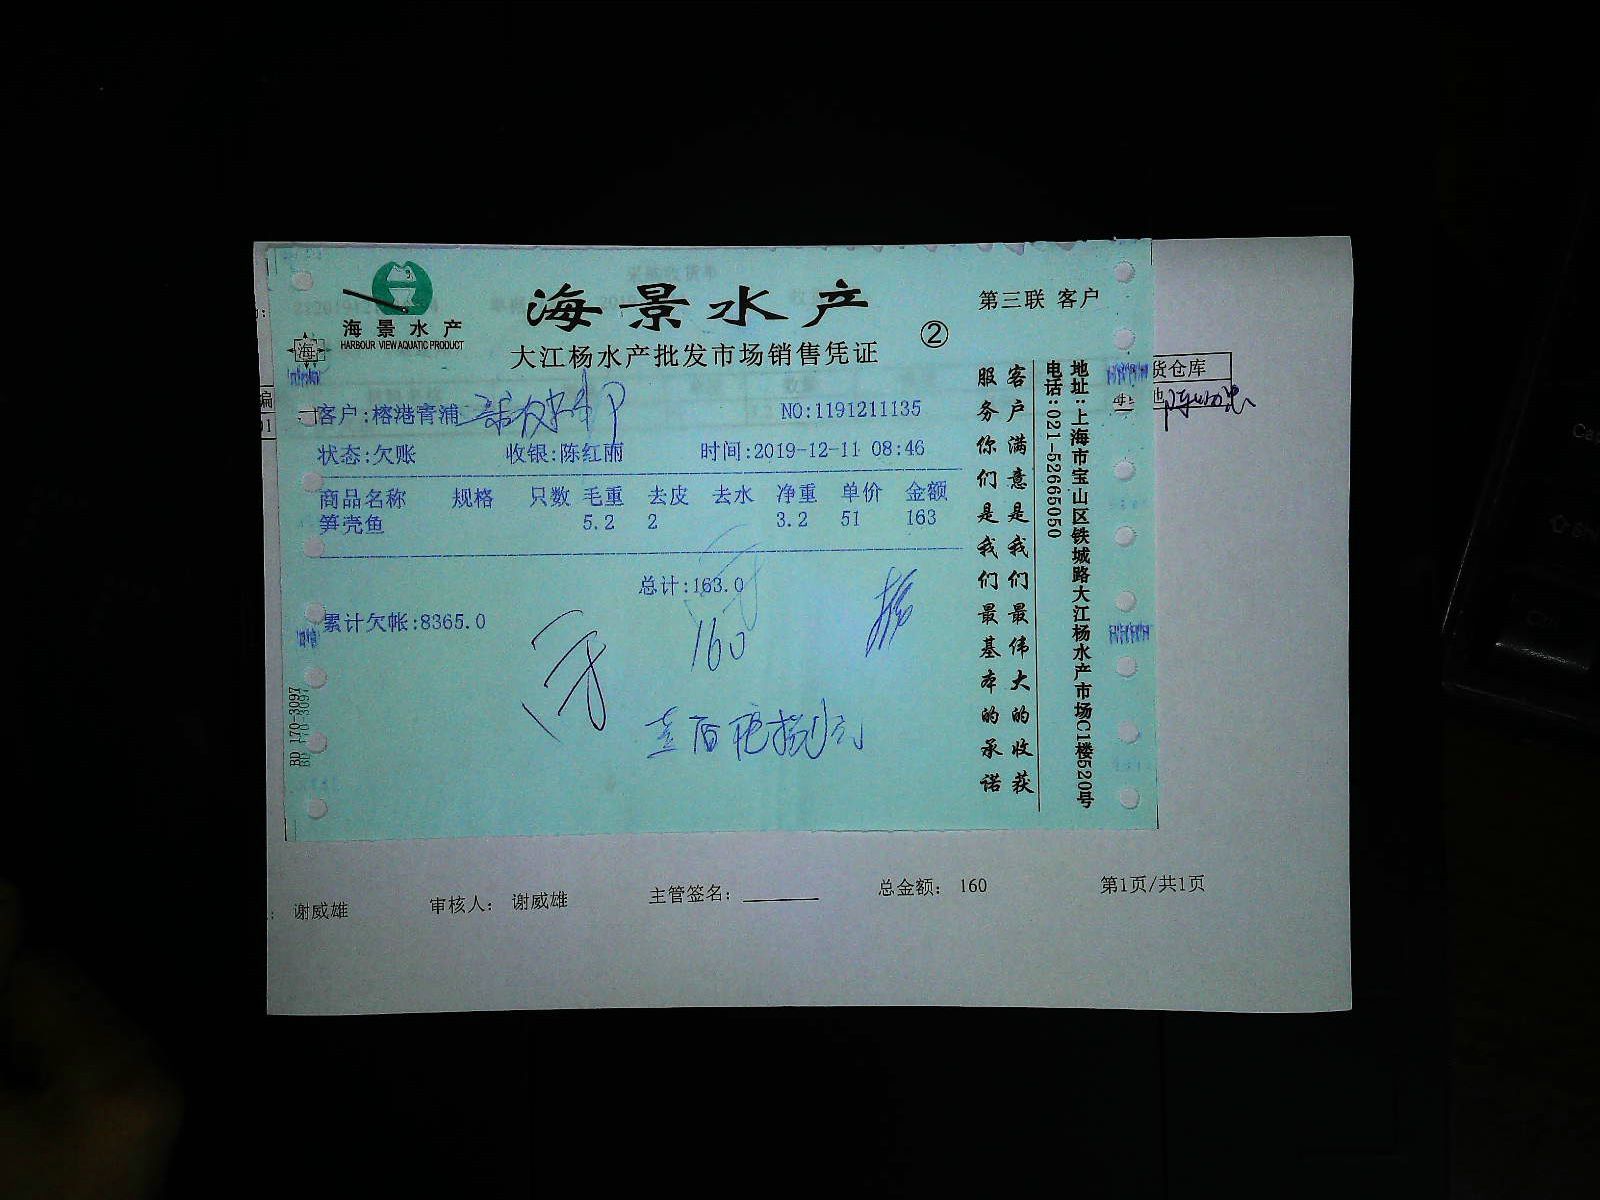 海景水产
HARBOUR VIEW AQUATIC PRODUCT
海
海景水产
②
第三联 客户
大江杨水产批发市场销售凭证
客户:榕港青浦
NO:1191211135
状态:欠账 收银:陈红雨 时间:2019-12-11 08:46
商品名称 规格 只数 毛重 去皮 去水 净重 单价 金额
笋壳鱼 5.2 2 3.2 51 163
总计:163.0
累计欠帐:8365.0
160
壹佰陆拾元
客户满意是我们最伟大的收获
服务你们是我们最基本的承诺
地址:上海市宝山区铁城路大江杨水产市场C1楼520号
电话:021-52665050
BD 170-3097
货仓库
谢威雄 审核人: 谢威雄 主管签名: 总金额: 160 第1页/共1页